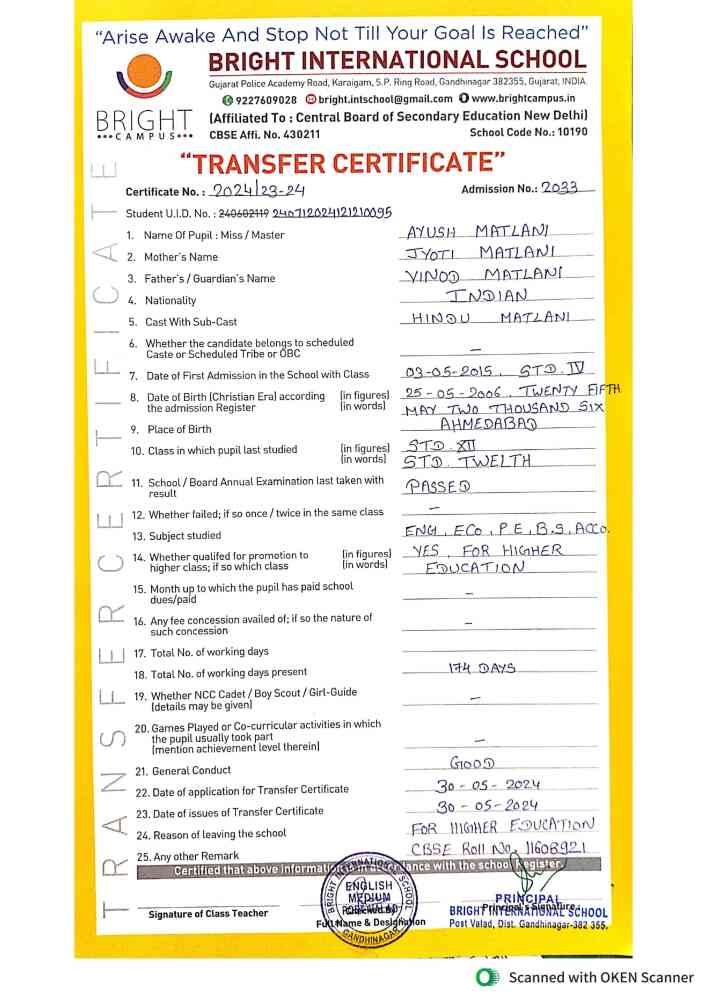 “Arise Awake And Stop Not Till Your Goal Is Reached”
BRIGHT INTERNATIONAL SCHOOL
Gujarat Police Academy Road, Karaigam, S.P. Ring Road, Gandhinagar 382355, Gujarat, INDIA
9227609028 bright.intschool@gmail.com www.brightcampus.in
BRIGHT
•••CAMPUS•••
(Affiliated To : Central Board of Secondary Education New Delhi)
CBSE Affi. No. 430211 School Code No.: 10190
“TRANSFER CERTIFICATE”
TRANSFER CERTIFICATE
Certificate No. : 2024/23-24 Admission No.: 2033
Student U.I.D. No. : 240602119 240712024121210095
1. Name Of Pupil : Miss / Master AYUSH MATLANI
2. Mother's Name JYOTI MATLANI
3. Father's / Guardian's Name VINOD MATLANI
4. Nationality INDIAN
5. Cast With Sub-Cast HINDU MATLANI
6. Whether the candidate belongs to scheduled
Caste or Scheduled Tribe or OBC –
7. Date of First Admission in the School with Class 03-05-2015, STD. IV
8. Date of Birth (Christian Era) according (in figures) 25-05-2006, TWENTY FIFTH
the admission Register (in words) MAY TWO THOUSAND SIX
9. Place of Birth AHMEDABAD
10. Class in which pupil last studied (in figures) STD. XII
(in words) STD. TWELTH
11. School / Board Annual Examination last taken with
result PASSED
12. Whether failed; if so once / twice in the same class –
13. Subject studied ENG, ECO, P.E, B.S, ACCO.
14. Whether qualifed for promotion to (in figures) YES, FOR HIGHER
higher class; if so which class (in words) EDUCATION
15. Month up to which the pupil has paid school
dues/paid –
16. Any fee concession availed of; if so the nature of
such concession –
17. Total No. of working days
18. Total No. of working days present 174 DAYS
19. Whether NCC Cadet / Boy Scout / Girl-Guide
(details may be given) –
20. Games Played or Co-curricular activities in which
the pupil usually took part
(mention achievement level therein) –
21. General Conduct GOOD
22. Date of application for Transfer Certificate 30-05-2024
23. Date of issues of Transfer Certificate 30-05-2024
24. Reason of leaving the school FOR HIGHER EDUCATION
25. Any other Remark CBSE Roll No. 11608921
Certified that above with the school Register.
BRIGHT INTERNATIONAL SCHOOL
ENGLISH
MEDIUM
GANDHINAGAR
Signature of Class Teacher
Full Name & Designation
PRINCIPAL
Principal's Signature
BRIGHT INTERNATIONAL SCHOOL
Post Valad, Dist. Gandhinagar-382 355.
Scanned with OKEN Scanner